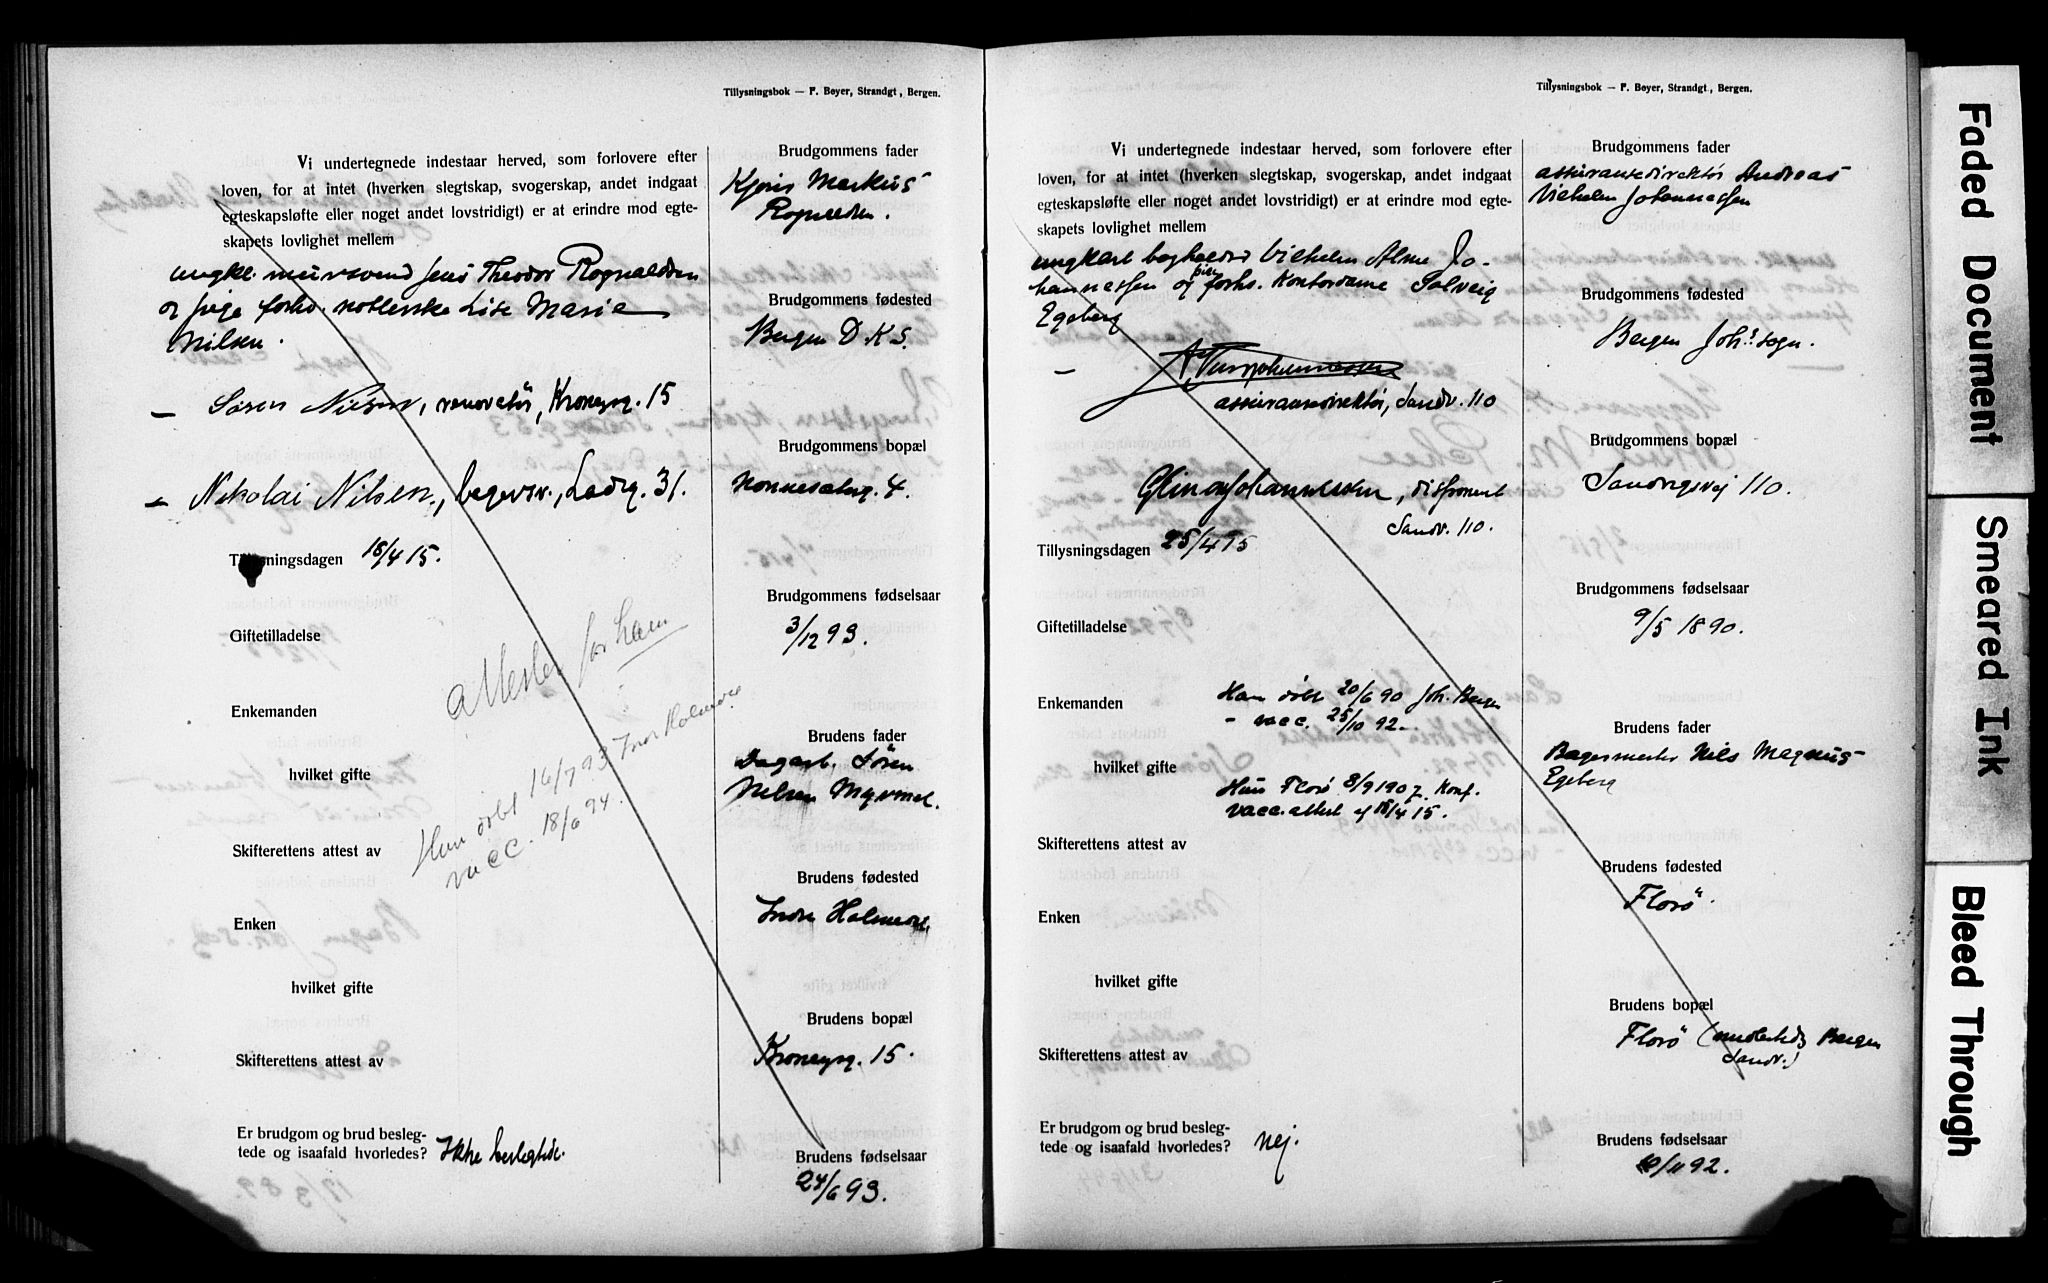 Tillysningsbok — F. Beyer, Strandgt., Bergen.
Vi undertegnede indestaar herved, som forlovere efter
loven, for at intet (hverken slegtskap, svogerskap, andet indgaat
egteskapsløfte eller noget andet lovstridigt) er at erindre mod egte-
skapets lovlighet mellem
ungkl. mursvend Jens Theodor Rognaldsen
og pige forhv. Lise Maria
Nilsen.
— Søren Nilsen, renovatør, Kronesg. 15
— Nikolai Nilsen, Ladeg. 31.
Tillysningsdagen 18/4 15.
Giftetilladelse
Enkemanden
hvilket gifte
Skifterettens attest av
Enken
hvilket gifte
Skifterettens attest av
Er brudgom og brud besleg-
tede og isaafald hvorledes? Ikke beslegtede.
attester for ham
Hun døbt 16/7 93 Indre Holmedal
vacc. 18/6 94.
Brudgommens fader
Markus
Rognaldsen.
Brudgommens fødested
Bergen D.K.S.
Brudgommens bopæl
Nonnesæterg. 4.
Brudgommens fødselsaar
3/12 93.
Brudens fader
Dagarb. Søren
Nilsen Myrmel.
Brudens fødested
Indre Holmedal
Brudens bopæl
Kronesg. 15.
Brudens fødselsaar
24/6 93.
Tillysningsbok — F. Beyer, Strandgt., Bergen.
Vi undertegnede indestaar herved, som forlovere efter
loven, for at intet (hverken slegtskap, svogerskap, andet indgaat
egteskapsløfte eller noget andet lovstridigt) er at erindre mod egte-
skapets lovlighet mellem
ungkarl bogholder Vilhelm Jo-
hannessen og pike forhv. Kontordame Solveig
Egeberg
—
assuransedirektør, Sandv. 110
Johannessen, disponent
Sandv. 110.
Tillysningsdagen 25/4 15
Giftetilladelse
Enkemanden
Han døbt 20/6 90 Joh. Bergen
– vacc. 25/10 92.
hvilket gifte
Hun Florø 8/9 1907. Konf.
vacc. attest af 18/4 15.
Skifterettens attest av
Enken
hvilket gifte
Skifterettens attest av
Er brudgom og brud besleg-
tede og isaafald hvorledes? nej.
Brudgommens fader
assuransedirektør Andreas
Vilhelm Johannessen
Brudgommens fødested
Bergen Joh.s sogn.
Brudgommens bopæl
Sandvigsvej 110.
Brudgommens fødselsaar
9/5 1890.
Brudens fader
Bagermester Nils Magnus
Egeberg
Brudens fødested
Florø.
Brudens bopæl
Florø (midlertidig Bergen
Sandv.)
Brudens fødselsaar
/11 92.
Faded Document
Smeared Ink
Bleed Through